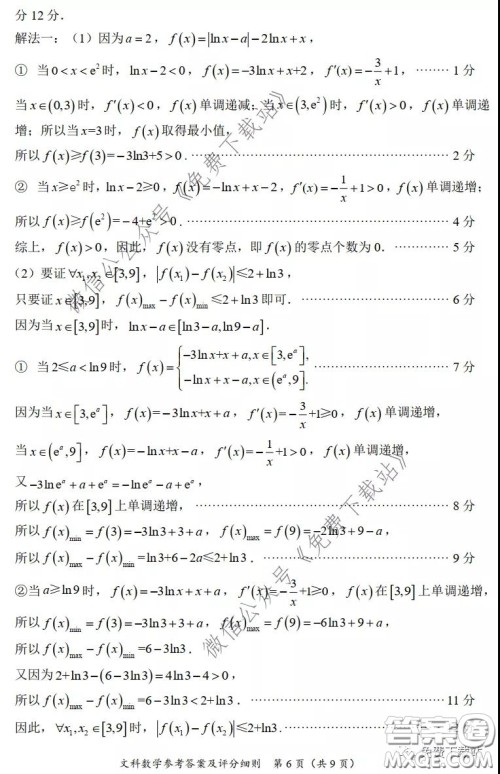 分12分.
解法一：（1）因为a=2，f(x)=|lnx-a|-2lnx+x，
① 当0<x<e²时，lnx-2<0，f(x)=-3lnx+x+2，f′(x)=-3/x+1，········ 1分
当x∈(0,3)时，f′(x)<0，f(x)单调递减；当x∈(3,e²)时，f′(x)>0，f(x)单调递
增；所以当x=3时，f(x)取得最小值，
所以f(x)≥f(3)=-3ln3+5>0．········ 2分
② 当x≥e²时，lnx-2≥0，f(x)=-lnx+x-2，f′(x)=-1/x+1>0，f(x)单调递增；
所以f(x)≥f(e²)=-4+e²>0．········ 4分
综上，f(x)>0，因此，f(x)没有零点，即f(x)的零点个数为0．········ 5分
（2）要证∀x₁,x₂∈[3,9]，|f(x₁)-f(x₂)|≤2+ln3，
只要证x∈[3,9]，f(x)max-f(x)min≤2+ln3即可．········ 6分
因为当x∈[3,9]时，lnx-a∈[ln3-a,ln9-a]．
① 当2≤a<ln9时，f(x)={-3lnx+x+a,x∈[3,eᵃ], -lnx+x-a,x∈(eᵃ,9]. ········ 7分
因为当x∈[3,eᵃ]，f(x)=-3lnx+x+a，f′(x)=-3/x+1≥0，f(x)单调递增，
当x∈(eᵃ,9]，f(x)=-lnx+x-a，f′(x)=-1/x+1>0，f(x)单调递增，
又-3lneᵃ+eᵃ+a=-lneᵃ+eᵃ-a，
所以f(x)在[3,9]上单调递增，········ 8分
所以f(x)min=f(3)=-3ln3+3+a，f(x)max=f(9)=-2ln3+9-a，
所以f(x)max-f(x)min=ln3+6-2a≤2+ln3．········ 9分
②当a≥ln9时，f(x)=-3lnx+x+a，f′(x)=-3/x+1≥0，f(x)在[3,9]上单调递增，
所以f(x)min=f(3)=-3ln3+3+a，f(x)max=f(9)=-6ln3+9+a，
所以f(x)max-f(x)min=6-3ln3．
又因为2+ln3-(6-3ln3)=4ln3-4>0，
所以f(x)max-f(x)min=6-3ln3<2+ln3．········ 11分
因此，∀x₁,x₂∈[3,9]时，|f(x₁)-f(x₂)|≤2+ln3．
文科数学参考答案及评分细则 第6页（共9页）
微信公众号《免费下载站》
微信公众号《免费下载站》